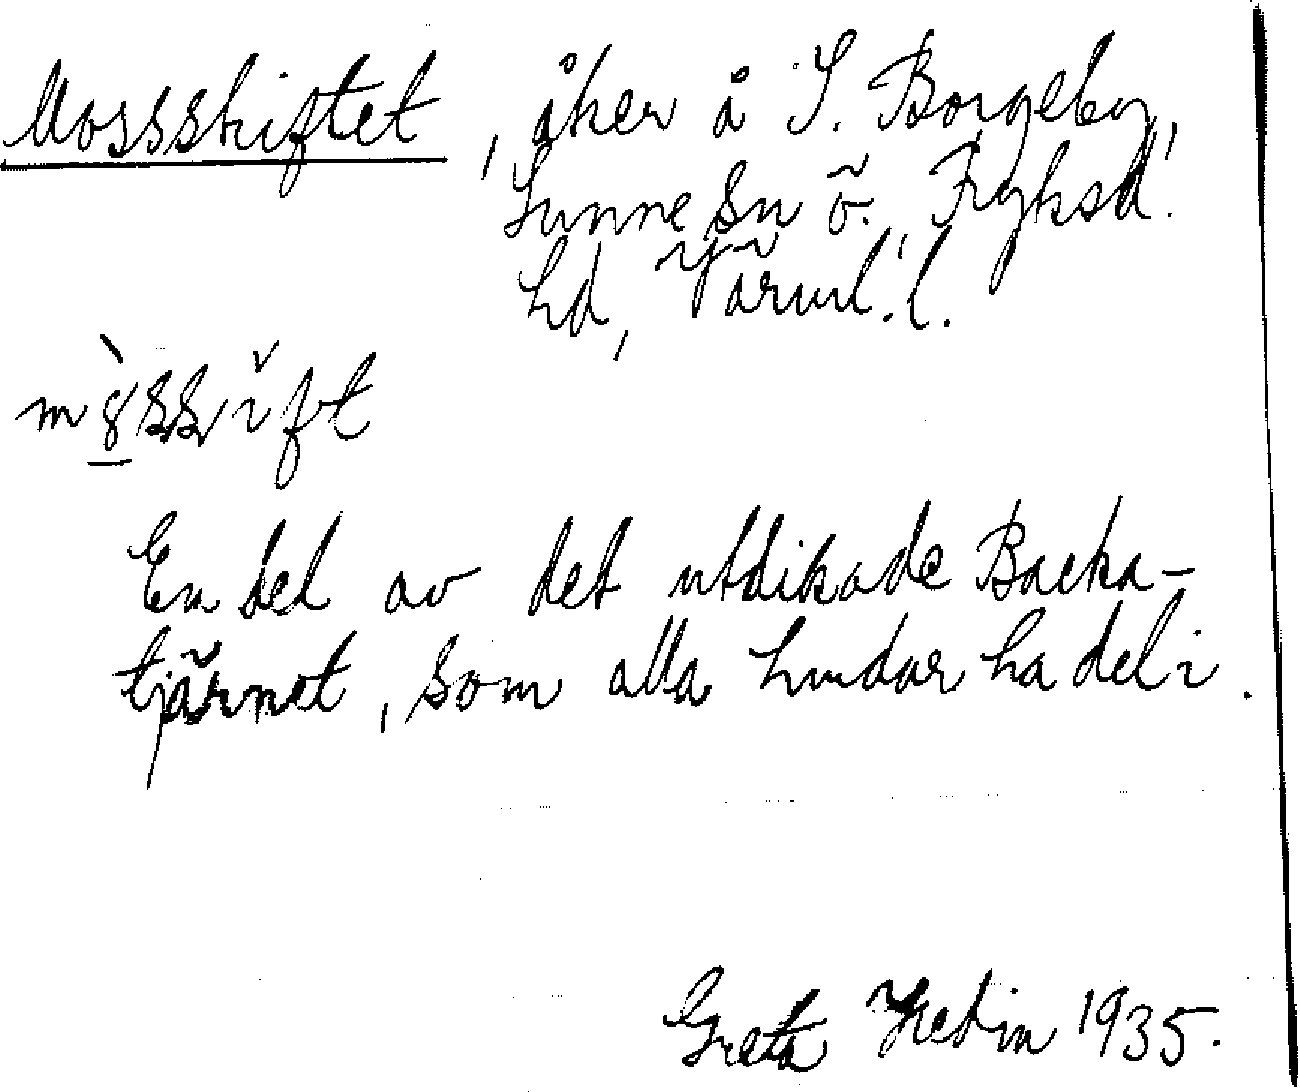 Mossskiftet, åker å S. Borgeby,
Sunne sn ö., Fryksd.
hd, Värml. l.
En del av det utdikade Backa-
tjärnet, som alla hindar ha del i.
Greta Hedin 1935.